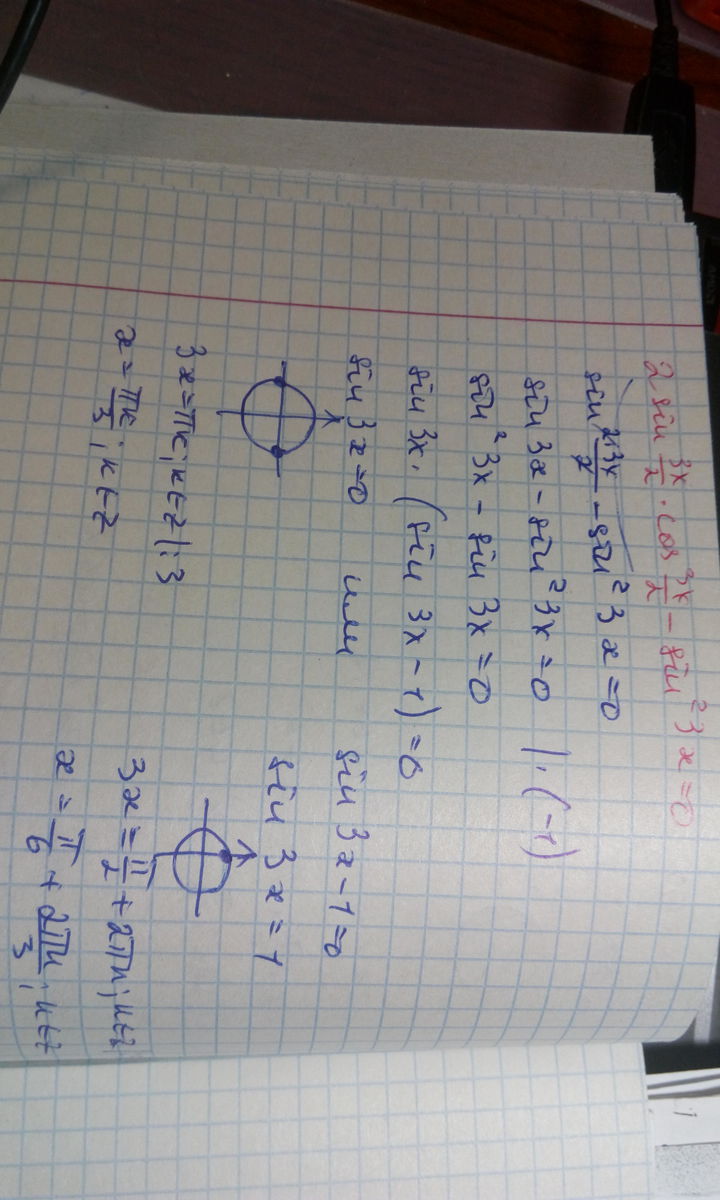 2 sin 3x/2 · cos 3x/2 − sin² 3x = 0
sin 2·3x/2 − sin² 3x = 0
sin 3x − sin² 3x = 0 | · (−1)
sin² 3x − sin 3x = 0
sin 3x · (sin 3x − 1) = 0
sin 3x = 0 или sin 3x − 1 = 0
sin 3x = 1
3x = πк; к∈z |:3
x = πк/3; к∈z
3x = π/2 + 2πк; к∈z
x = π/6 + 2πк/3; к∈z